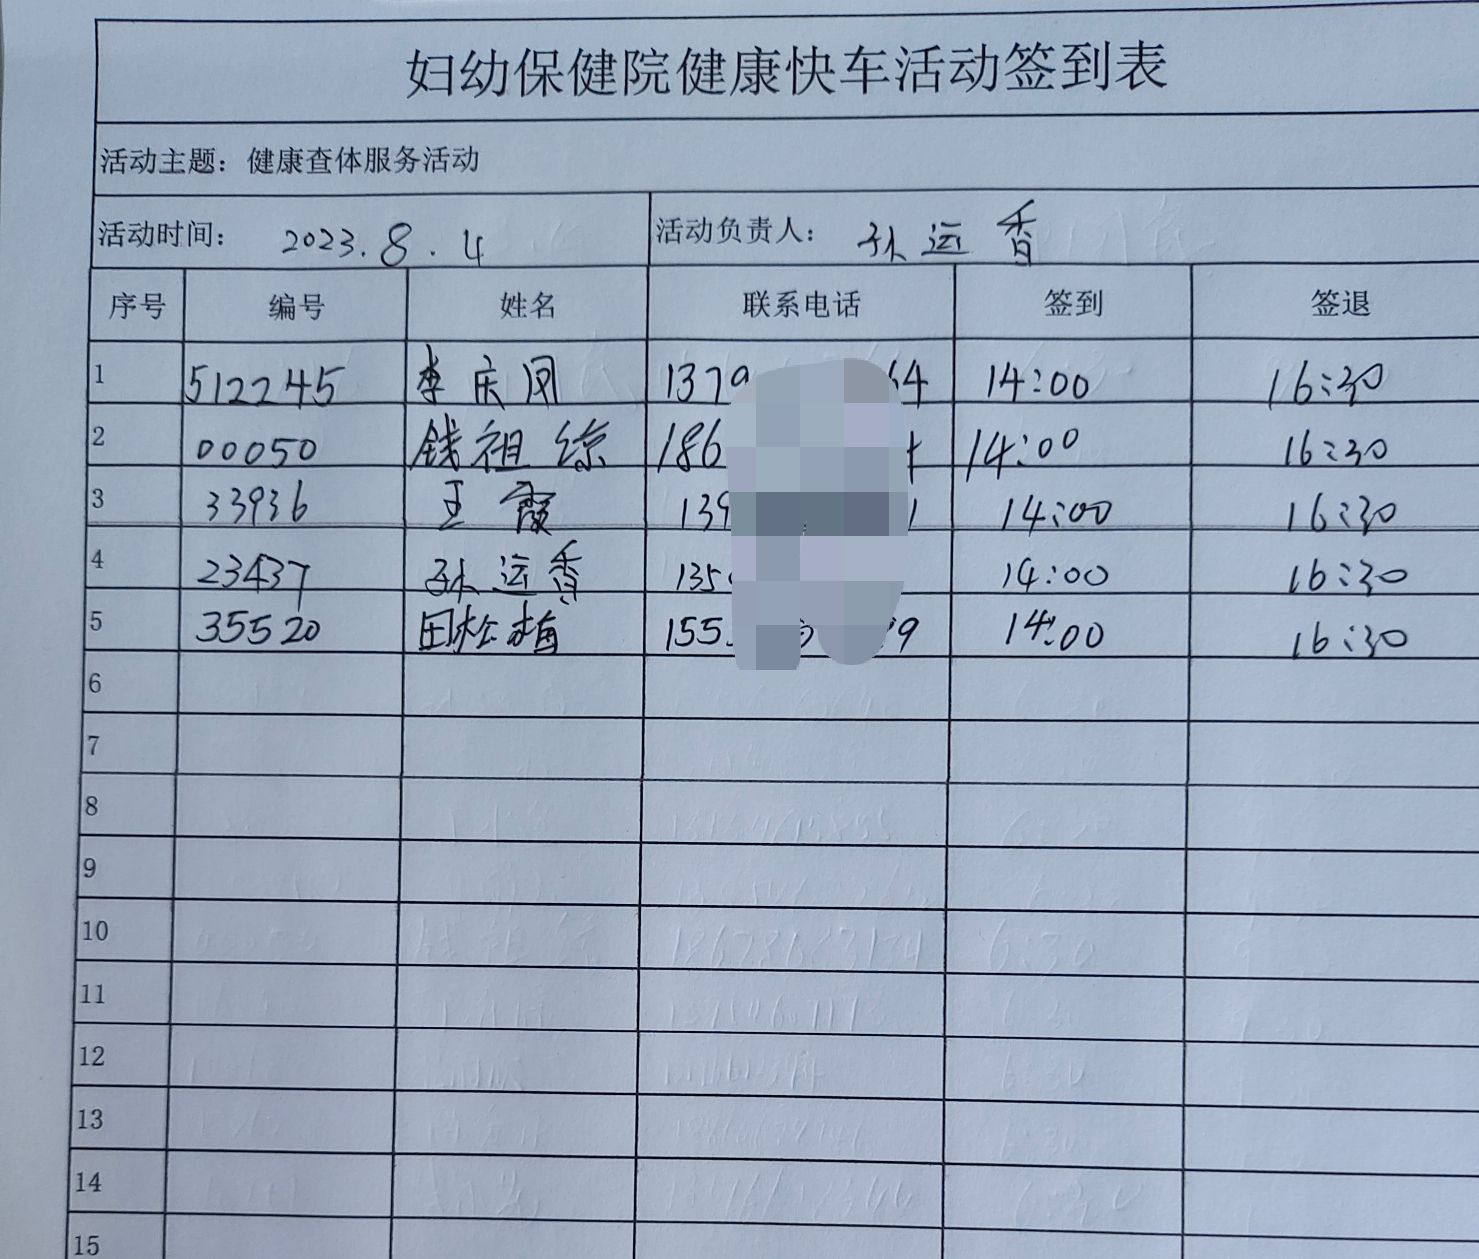 妇幼保健院健康快车活动签到表
活动主题：健康查体服务活动
活动时间： 2023.8.4 活动负责人： 孙远香
序号 编号 姓名 联系电话 签到 签退
1 512245 李庆凤 1379 64 14:00 16:30
2 00050 钱祖琼 186 14:00 16:30
3 33936 王霞 139 1 14:00 16:30
4 23437 孙远香 135 14:00 16:30
5 35520 田松梅 155 99 14:00 16:30
6
7
8
9
10
11
12
13
14
15